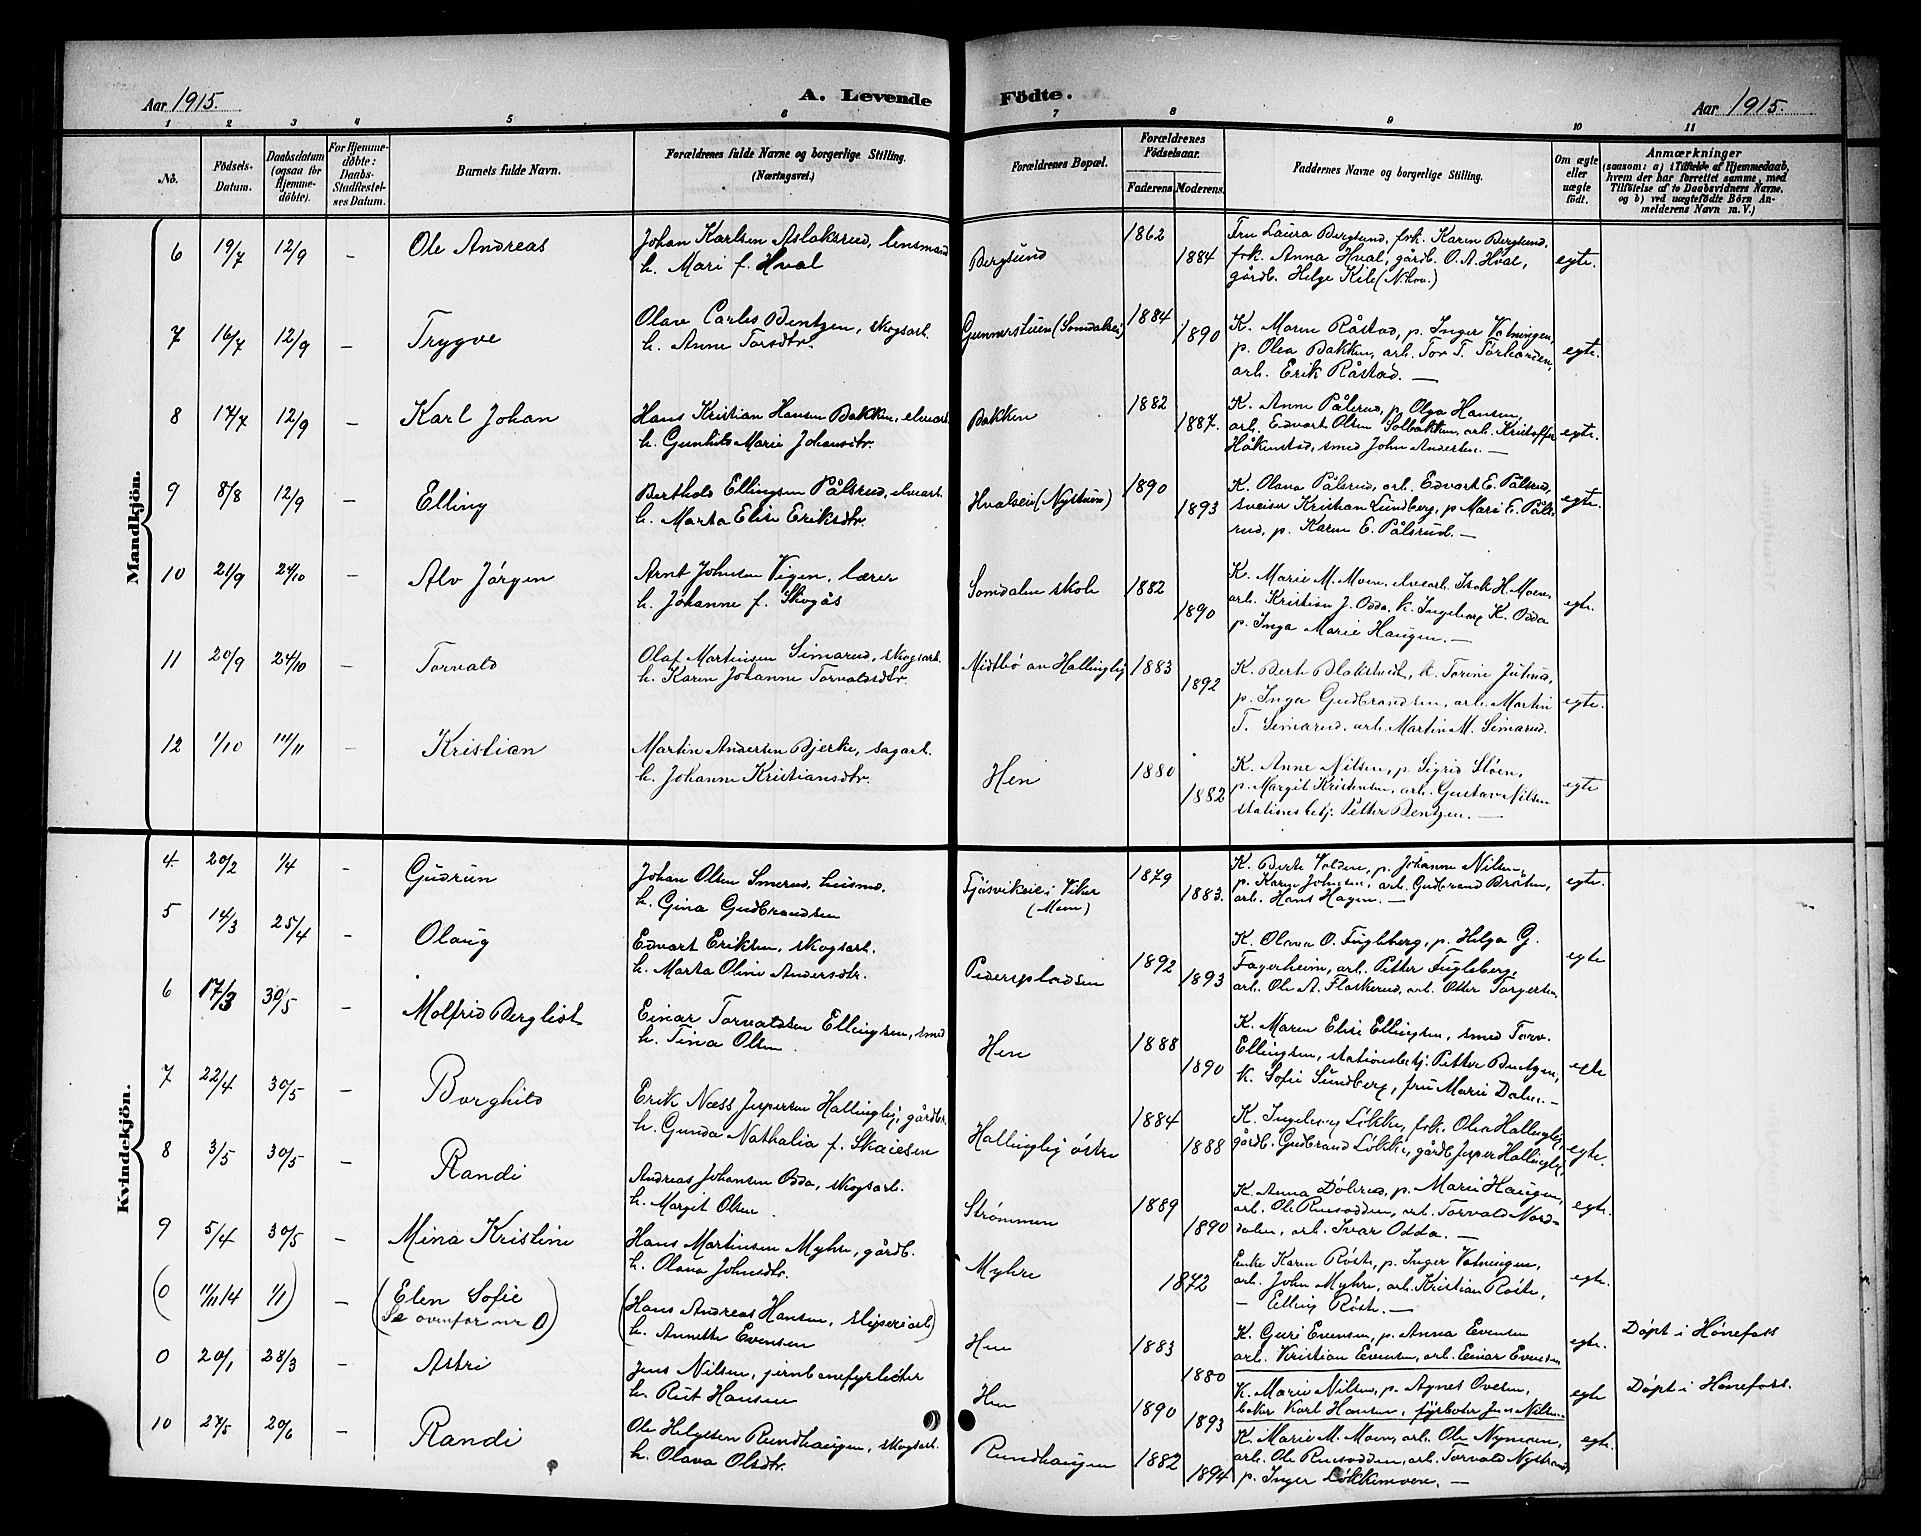 Aar 1915. A. Levende Fødte. Aar 1915.
1 2 3 4 5 6 7 8 9 10 11
No.
Fødsels-Datum.
Daabsdatum (ogsaa for Hjemme-døbte).
For Hjemme-døbte: Daabs-Stadfæstel-ses Datum.
Barnets fulde Navn.
Forældrenes fulde Navne og borgerlige Stilling.
(Næringsvei.)
Forældrenes Bopæl.
Forældrenes Fødselsaar.
Faderens. Moderens.
Faddernes Navne og borgerlige Stilling.
Om ægte eller uægte født.
Anmærkninger
(saasom: a) i Tilfælde af Hjemmedaab,
hvem der har forrettet samme, med
Tilføielse af to Daabsvidners Navne.
og b) ved uægtefødte Børn An-
melderens Navn m. V.)
Mandkjön.
6 19/7 12/9 – Ole Andreas
Johan Karlsen Aslaksrud, lensmand
h. Mari f. Hval
Bergsund 1862 1884
Fru Laura Bergsund, frk. Karen Bergsund,
frk. Anna Hval, gårdb. O. A. Hval,
gårdb. Helge Kile (N.hov.)
egte.
7 16/7 12/9 – Trygve
Olav Carles Bentzen, skogsarb.
h. Anne Torsdtr.
Gunnerstuen (Somdalen) 1884 1890
K. Maren Råstad, p. Inger Vatningen,
p. Olea Bakken, arb. Tor T.
arb. Erik Råstad. –
egte.
8 17/7 12/9 – Karl Johan
Hans Kristian Hansen Bakken, elvearb.
h. Gunhild Marie Johansdtr.
Bakken 1882 1887.
K. Anne Pålsrud, p. Olga Hansen,
arb. Edvart Olsen Solbakken, arb. Kristoffer
Håkenstad, smed John Andersen. –
egte.
9 8/8 12/9 – Elling
Berthold Ellingsen Pålsrud, elvearb.
h. Marta Elise Eriksdtr.
Hvalseie (Nystuen) 1890 1893
K. Olava Pålsrud, arb. Edvart E. Pålsrud,
sveiser Kristian Lundberg, p. Mari E. Påls-
rud, p. Karen E. Pålsrud. –
egte.
10 21/9 24/10 – Alv Jørgen
Arnt Johnsen Vigen, lærer
h. Johanne f. Skogås
Somdalen skole 1882 1890
K. Marie M. Moen, elvearb. Isak H. Moen,
arb. Kristian J. Odda, k. Ingeborg K. Odda
p. Inga Marie Haugen. –
egte.
11 20/9 24/10 – Torvald
Olaf Martinsen Simarud, skogsarb.
h. Karen Johanne Torvaldsdtr.
Midtbø av Hallingby 1883 1892
K. Berte Blakstvedt, k. Torine
p. Inga Gudbrandsen, arb. Martin
T. Simarud, arb. Martin M. Simarud.
egte.
12 1/10 14/11 – Kristian
Martin Andersen Bjerke, sagarb.
h. Johanne Kristiansdtr.
Hen 1880 1882
K. Anne Nilsen, p. Sigrid Sløen,
p. Margit Kristensen, arb. Gustav Nilsen
stationsbetj. Petter Bentzen. –
egte
Kvindekjön.
4. 20/2 1/4 – Gudrun
Johan Olsen Smerud, husmd.
h. Gina Gudbrandsen
Tjøsvikeie i Viker
(Moen)
1879 1883.
K. Berte Volden, p. Johanne Nilsen,
p. Karen Johnsen, arb. Gudbrand Bråten,
arb. Hans Hagen. –
egte.
5 14/3 25/4 – Olaug
Edvart Eriksen, skogsarb.
h. Marta Oline Andersdtr.
Pedersplassen 1892 1893
K. Olava O. Fugleberg, p. Helga G.
Fagerheim, arb. Petter Fugleberg,
arb. Ole A. Flaskerud, arb. Otter Torgersen,
egte
6 17/3 30/5 – Molfrid Bergliot
Einar Torvaldsen Ellingsen, smed
h. Tina Olsen.
Hen 1888 1890
K. Maren Elise Ellingsen, smed Torv.
Ellingsen, stationsbetj. Petter Bentzen,
K. Sofie Sundberg, fru Marie Dalen. –
egte
7 22/4 30/5 – Borghild
Erik Næss Jespersen Hallingby, gårdbr.
h. Gunda Nathalia f. Skaiesen
Hallingby østre 1884 1888
K. Ingeborg Løkke, frk. Olea Hallingby,
gårdb. Gudbrand Løkke, gårdb. Jesper Hallingby,
egte.
8 3/5 30/5 – Randi
Andreas Johansen Oda, skogsarb.
h. Margit Olsen.
Strømmen 1889 1890
K. Anna Dølerud, p. Marie Haugen,
arb. Ole Rusodden, arb. Torvald Nord-
dalen, arb. Ivar Odda. –
egte.
9 5/4 30/5 – Mina Kristine
Hans Martinsen Myhre, gårdb.
h. Olava Johnsdtr.
Myhre 1872
Enke Karen Røste, p. Inger Vatningen,
arb. John Myhre, arb. Kristian Røste,
– Elling Røste. –
egte.
(0 11/11 14 1/1) – (Elen Sofie
Se ovenfor nr 0)
(Hans Andreas Hansen, sliperiarb.)
h. Annette Evensen
Hen 1883 1880
K. Guri Evensen, p. Anna Evensen
arb. Kristian Evensen, arb. Einar Evensen
egte.
Døpt i Hønefoss
0 20/1 28/3 – Astri
Jens Nilsen, jernbanefyrbøter
h. Rut Hansen
Hen 1890 1893
K. Marie Nilsen, p. Agnes Ovesen,
baker Karl Hansen, fyrbøter Jens Nilsen
egte
Døpt i Hønefoss.
10 27/5 20/6 – Randi
Ole Helgesen Rundhaugen, skogsarb.
h. Olava Olsdtr.
Rundhaugen 1882 1894
K. Marie M. Moen, arb. Ole Nymoen,
arb. Ole Rusodden, arb. Torvald Nystrand,
p. Inger Løkkemoen. –
egte.